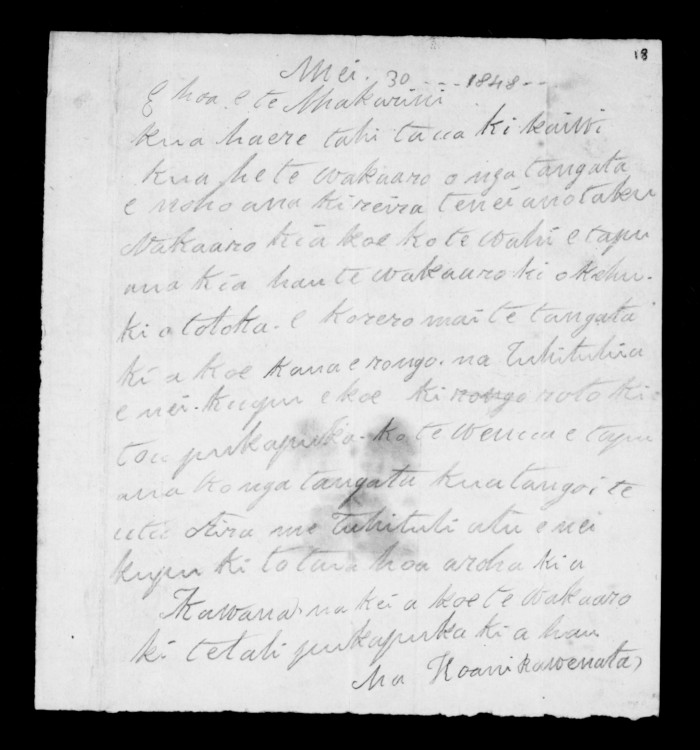 18
Mei. 30 - - - 1848 - -
E hoa e te Makarini
kua haere tahi taua ki kaiwi
kua he te wakaaro o nga tangata
e noho ana ki reira tenei ano taku
Wakaaro kia koe ko te wahi e tapu
ana kia hau te wakaaro ki okehu.
ki o totoka. e korero mai te tangata
ki a koe kaua e rongo. na Tuhituhia
e nei. kupu e koe ki rongo roto ki
tau pukapuka. ko te wenua e tapu
ana ko nga tangata kua tango i te
utu me Tuhituhi atu e nei
kupu ki to taua hoa aroha ki a
Kawana. na kei a koe te wakaaro
ki tetahi pukapuka ki a hau
Na Hoani kawenata